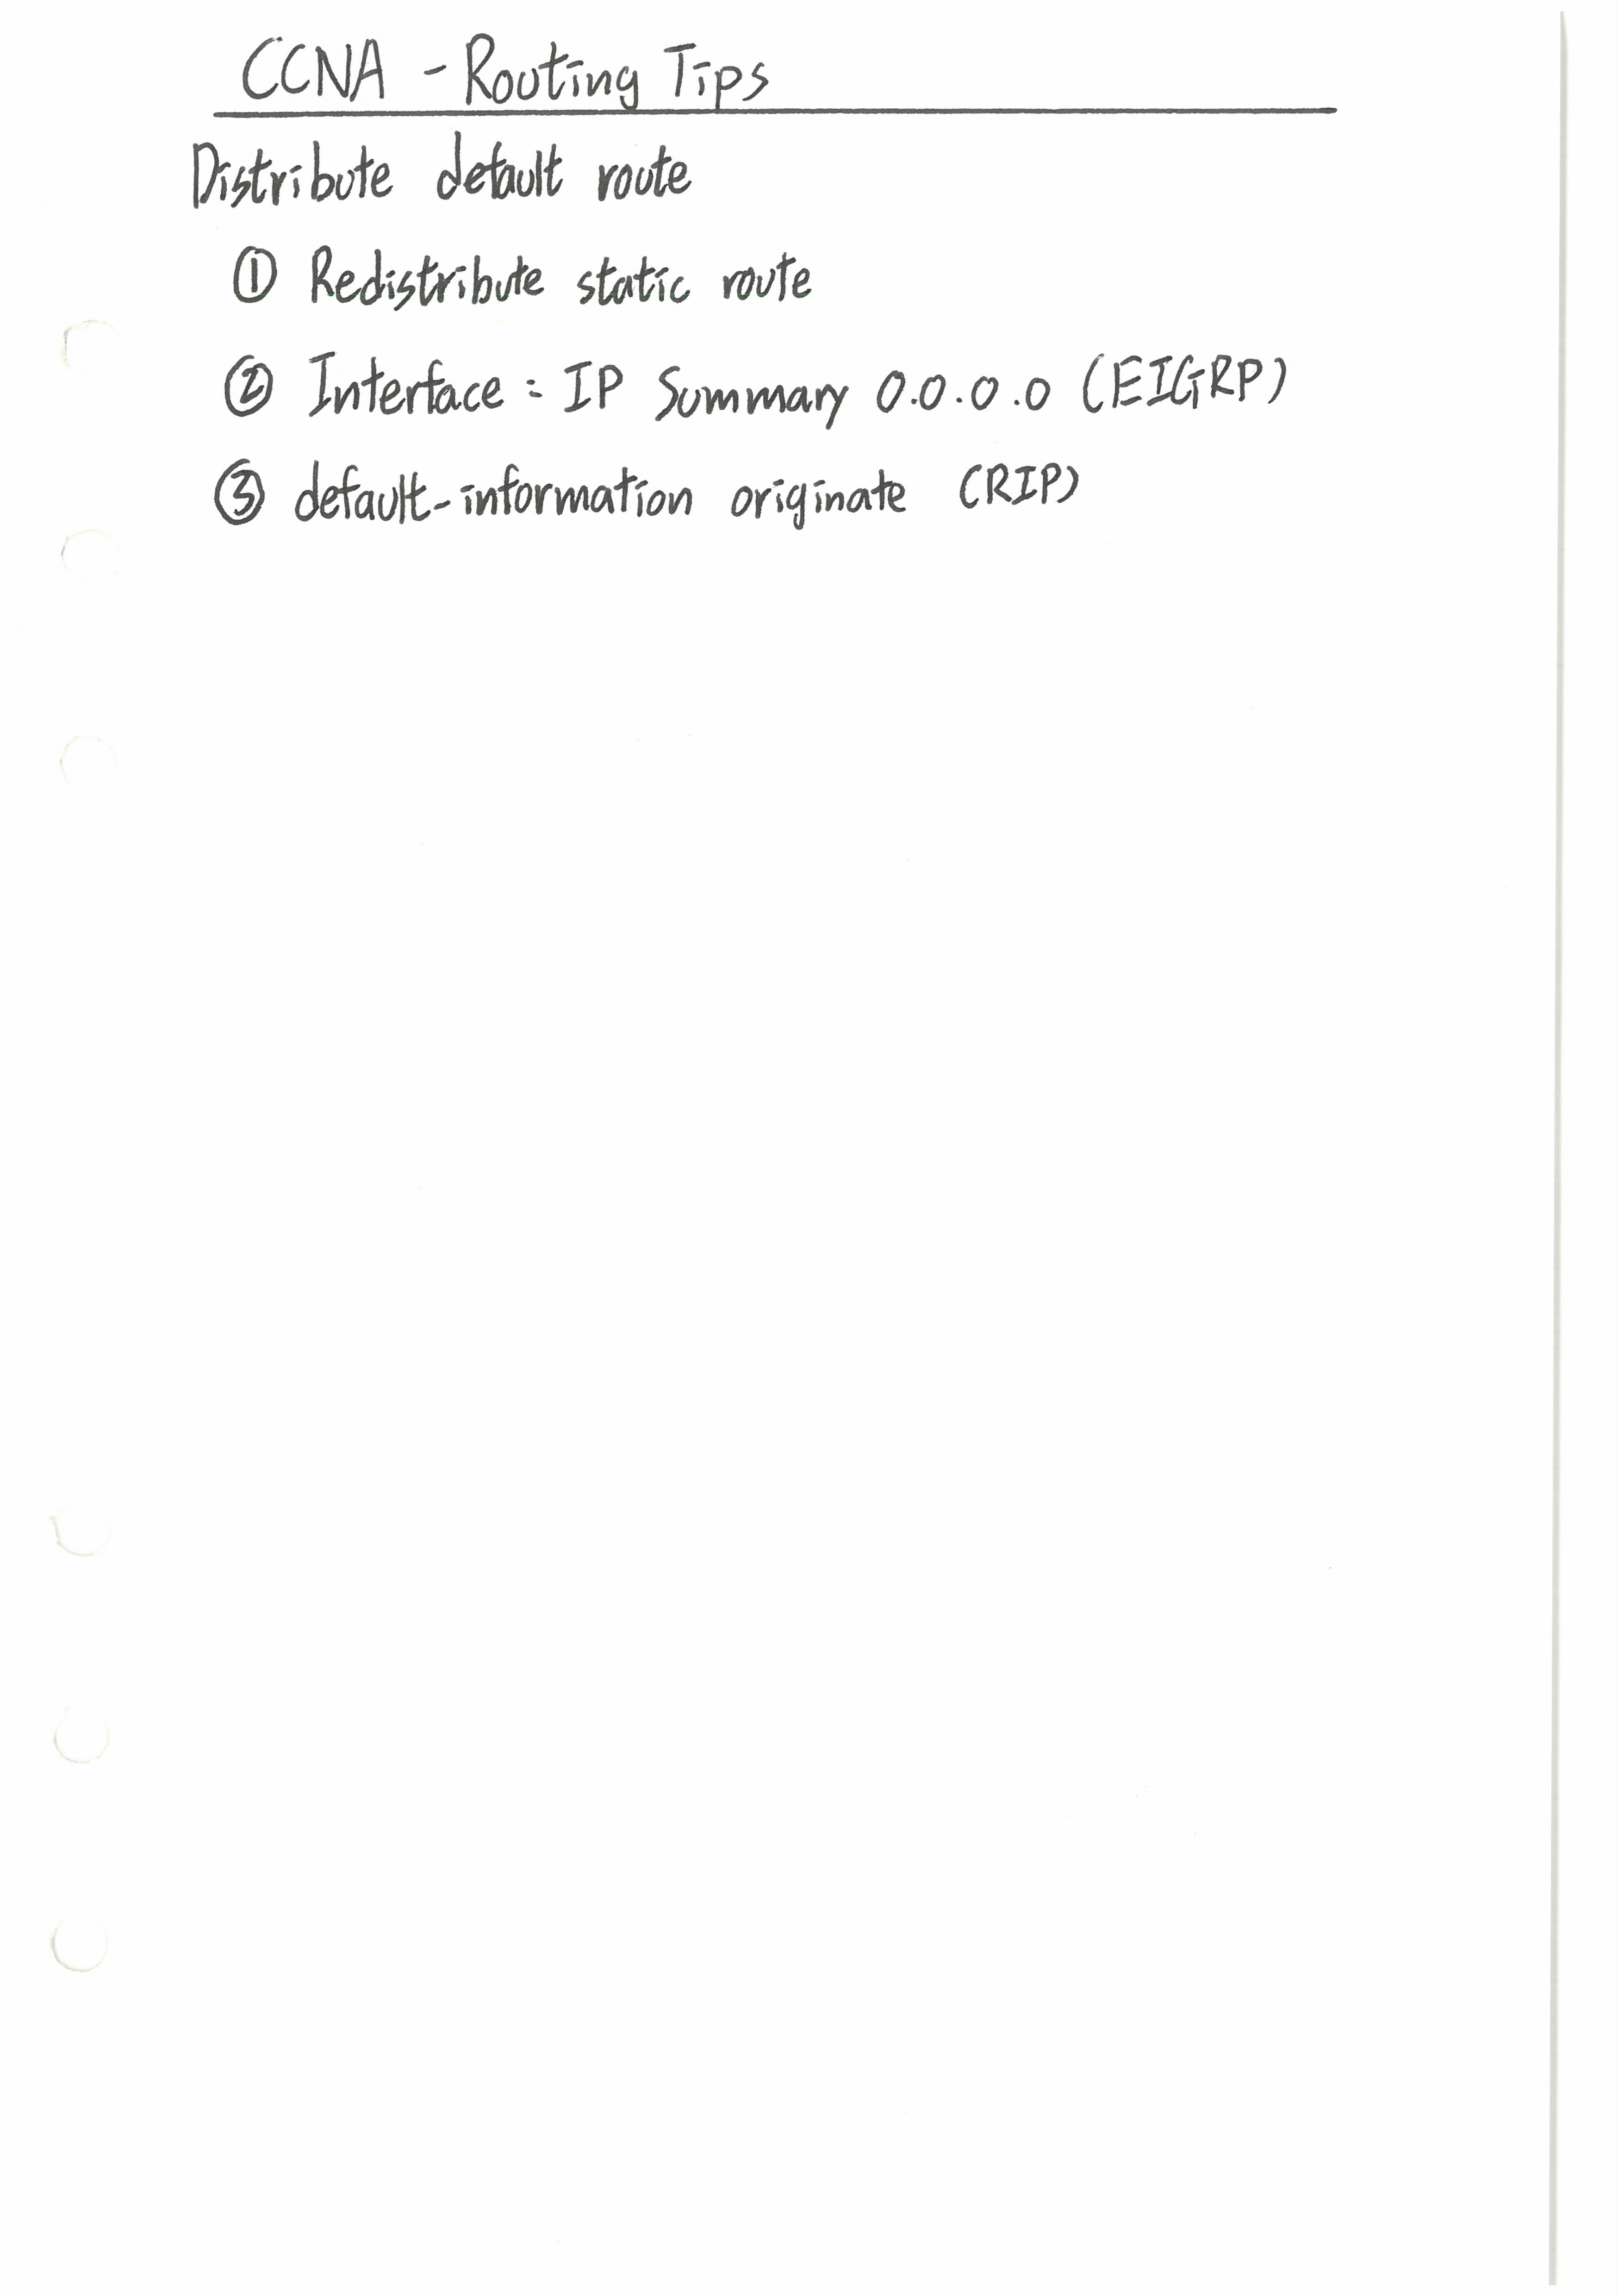 CCNA - Routing Tips
Distribute default route
① Redistribute static route
② Interface : IP Summary 0.0.0.0 (EIGRP)
③ default-information originate (RIP)